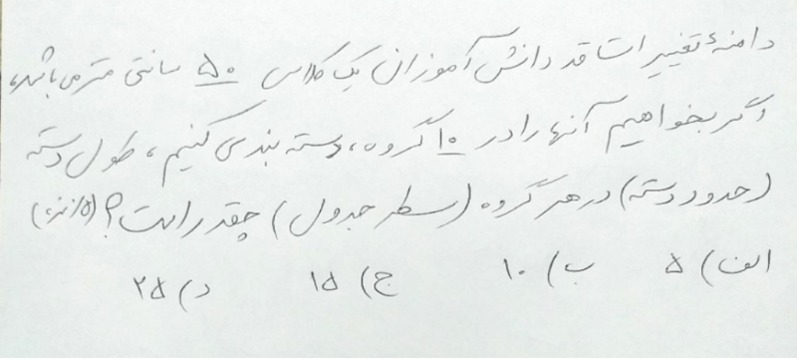 دامنهٔ تغییرات قد دانش آموزان یک کلاس ۵۰ سانتی متر می باشد،
اگر بخواهیم آنها را در ۱۰ گروه، دسته بندی کنیم، طول دسته
(حدود دسته) در هر گروه (سطر جدول) چقدر است؟ (۱/۵ نمره)
الف) ۵ ب) ۱۰ ج) ۱۵ د) ۲۵